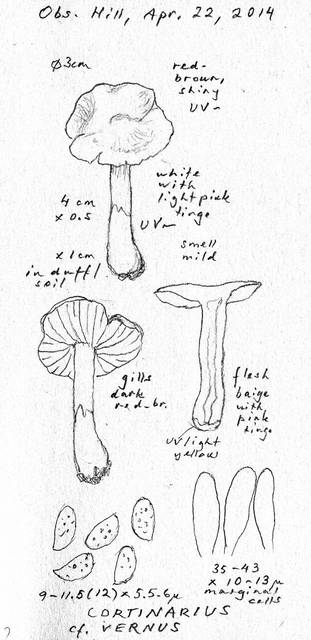 Obs. Hill, Apr. 22, 2014
Ø3cm
red-
brown,
shiny
UV-
white
with
light pink
tinge
4 cm
x 0.5
UV~
x 1cm
in duff/
soil
smell
mild
gills
dark
red-br.
flesh
baige
with
pink
tinge
UV light
yellow
9-11.5(12) x 5.5-6µ
35-43
x 10-13µ
marginal
cells
CORTINARIUS
cf. VERNUS